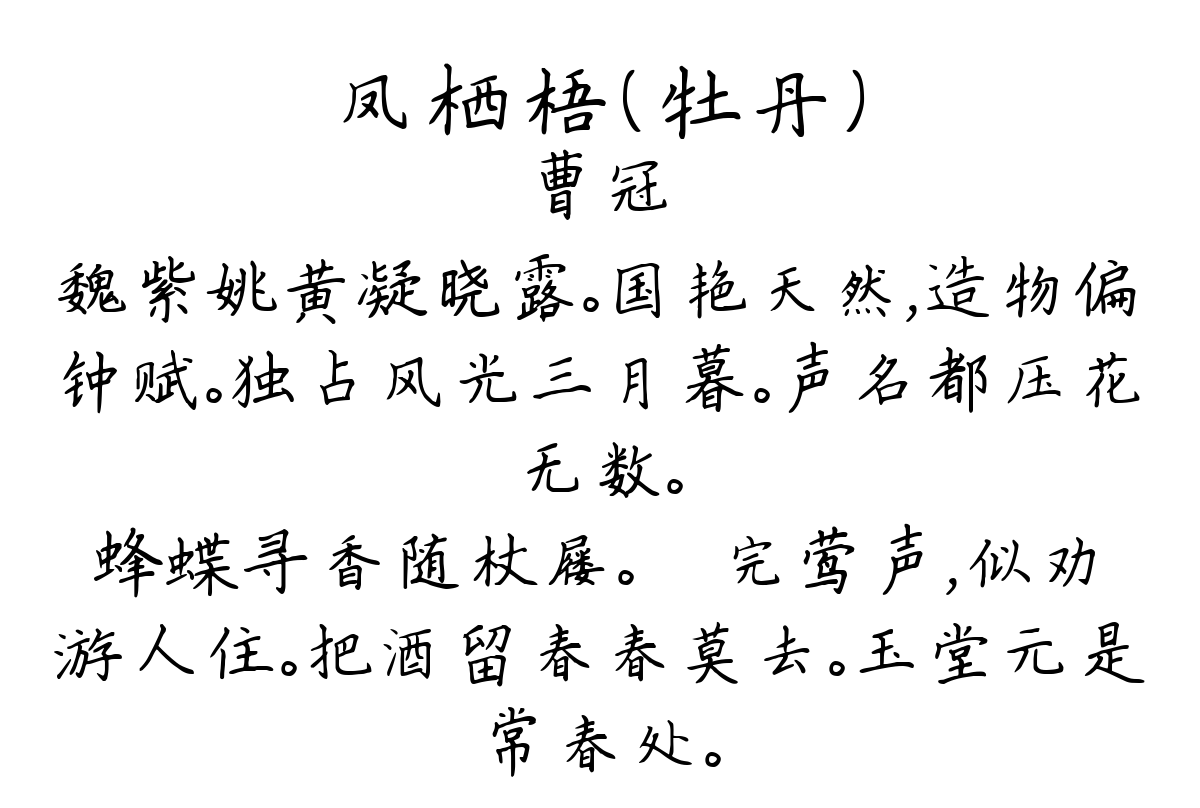 凤栖梧(牡丹)
曹冠
魏紫姚黄凝晓露。国艳天然,造物偏
钟赋。独占风光三月暮。声名都压花
无数。
蜂蝶寻香随杖屦。 完莺声,似劝
游人住。把酒留春春莫去。玉堂元是
常春处。